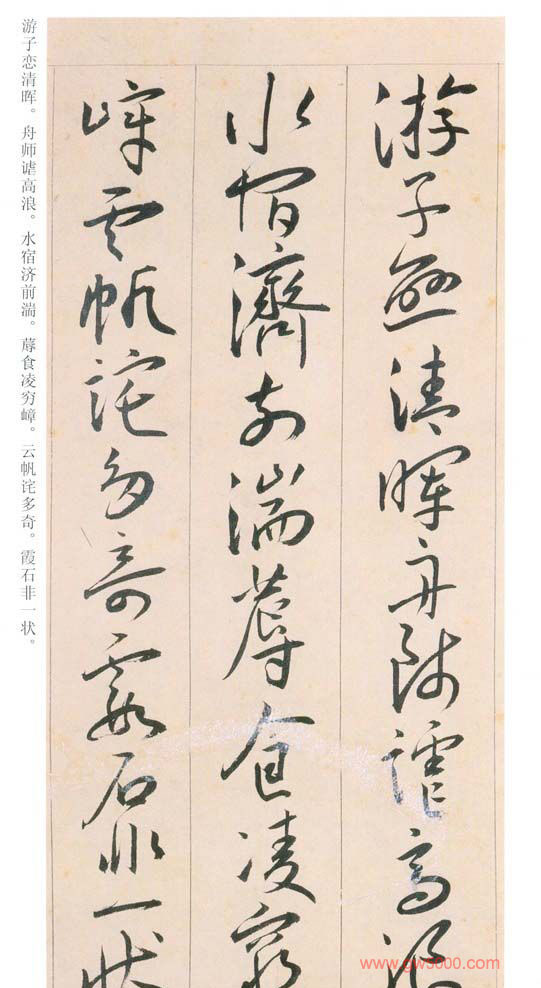 游子恋清晖。舟师謔高浪。水宿济前湍。蓐食凌穷嶂。云帆诧多奇。霞石非一状。
游子戀清暉舟師謔高浪
水宿濟前湍蓐食凌窮
嶂雲帆詫多奇霞石非一狀
www.gw5000.com